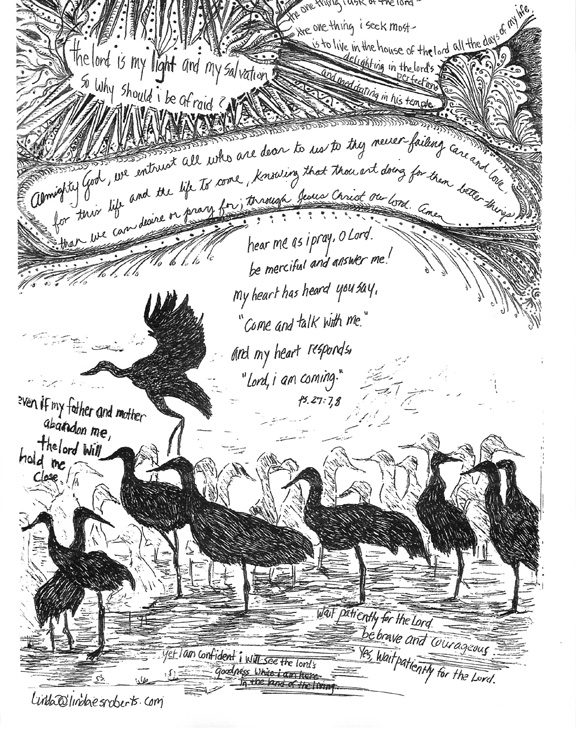 the one thing i ask of the lord~
the one thing i seek most~
is to live in the house of the lord all the days of my life,
delighting in the lord's
perfections
and meditating in his temple.
the lord is my light and my salvation
so why should i be afraid?
Almighty God, we entrust all who are dear to us to thy never-failing care and love,
for this life and the life to come, knowing that thou art doing for them better things
than we can desire or pray for; through Jesus Christ our Lord. Amen
hear me as i pray, O Lord.
be merciful and answer me!
my heart has heard you say,
"Come and talk with me."
and my heart responds,
"Lord, i am coming."
Ps. 27:7,8
even if my father and mother
abandon me,
the lord will
hold me
close.
wait patiently for the Lord.
be brave and courageous.
Yes, wait patiently for the Lord.
yet i am confident i will see the lord's
goodness while i am here
in the land of the living.
Linda@lindaesroberts.com